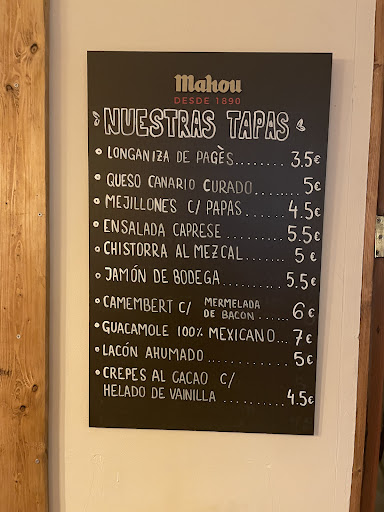 Mahou
DESDE 1890
NUESTRAS TAPAS
• LONGANIZA DE PAGÈS....... 3.5€
• QUESO CANARIO CURADO....... 5€
• MEJILLONES C/ PAPAS....... 4.5€
• ENSALADA CAPRESE ....... 5.5€
• CHISTORRA AL MEZCAL....... 5€
• JAMÓN DE BODEGA....... 5.5€
• CAMEMBERT C/ MERMELADA
DE BACON..... 6€
• GUACAMOLE 100% MEXICANO... 7€
• LACÓN AHUMADO.......... 5€
• CREPES AL CACAO C/
HELADO DE VAINILLA .......... 4.5€